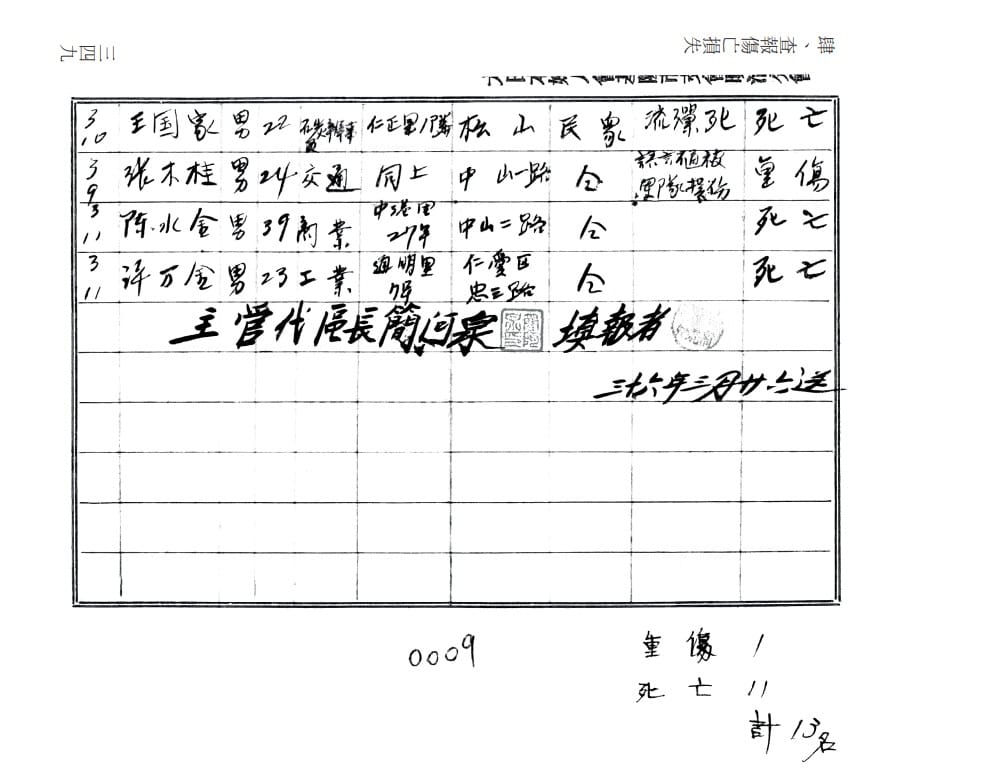 肆、查報傷亡損失
三四九
3/10 王国家 男 22 仁正里 松山 民眾 流彈死 死亡
3/9 張木桂 男 24 交通 同上 中山一路 仝 語言不通被軍隊 重傷
3/11 陈水金 男 39 商業 27 中山二路 仝 死亡
3/11 许万金 男 23 工業 通明里 仁愛区忠三路 仝 死亡
主管代區長簡河泉 填報者
三十六年三月廿六送
0009
重傷 1
死亡 11
計 13名